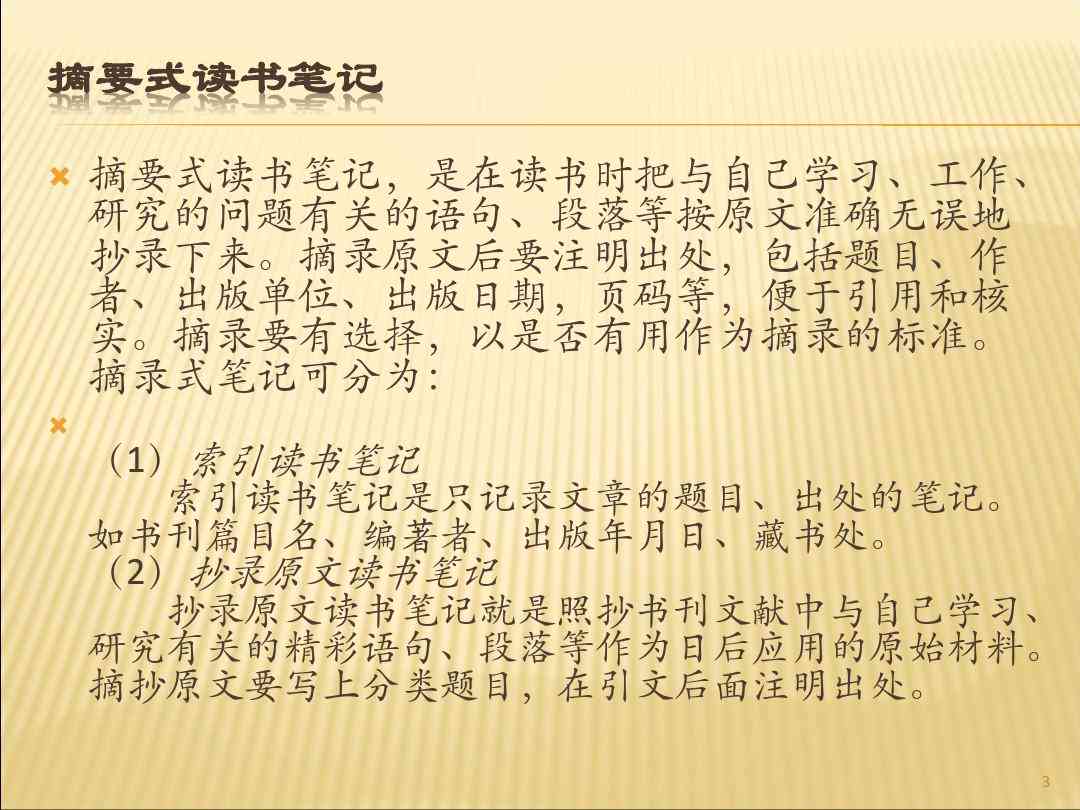 摘要式读书笔记
摘要式读书笔记，是在读书时把与自己学习、工作、
研究的问题有关的语句、段落等按原文准确无误地
抄录下来。摘录原文后要注明出处，包括题目、作
者、出版单位、出版日期，页码等，便于引用和核
实。摘录要有选择，以是否有用作为摘录的标准。
摘录式笔记可分为：
（1） 索引读书笔记
索引读书笔记是只记录文章的题目、出处的笔记。
如书刊篇目名、编著者、出版年月日、藏书处。
（2） 抄录原文读书笔记
抄录原文读书笔记就是照抄书刊文献中与自己学习、
研究有关的精彩语句、段落等作为日后应用的原始材料。
摘抄原文要写上分类题目，在引文后面注明出处。
3